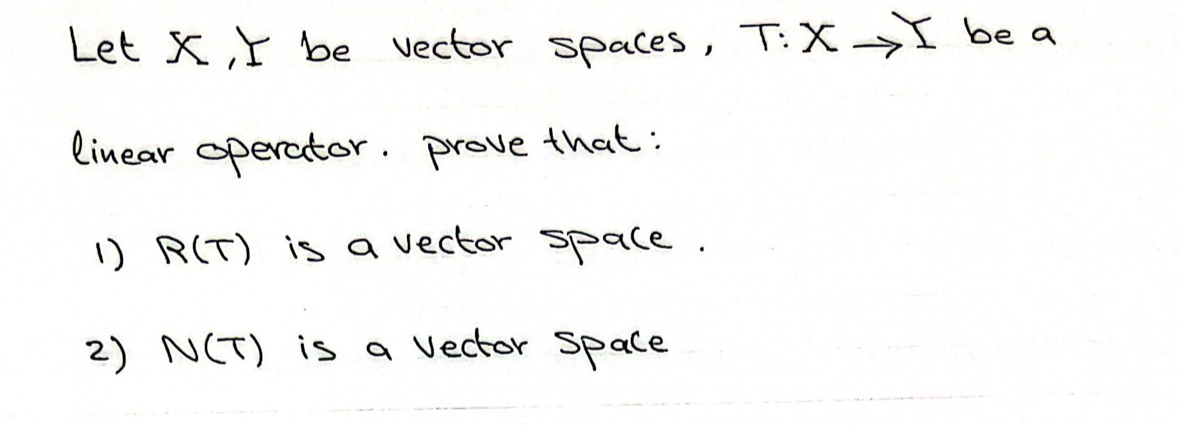 Let X, Y be vector spaces, T: X → Y be a
linear operator. prove that:
1) R(T) is a vector space.
2) N(T) is a vector space